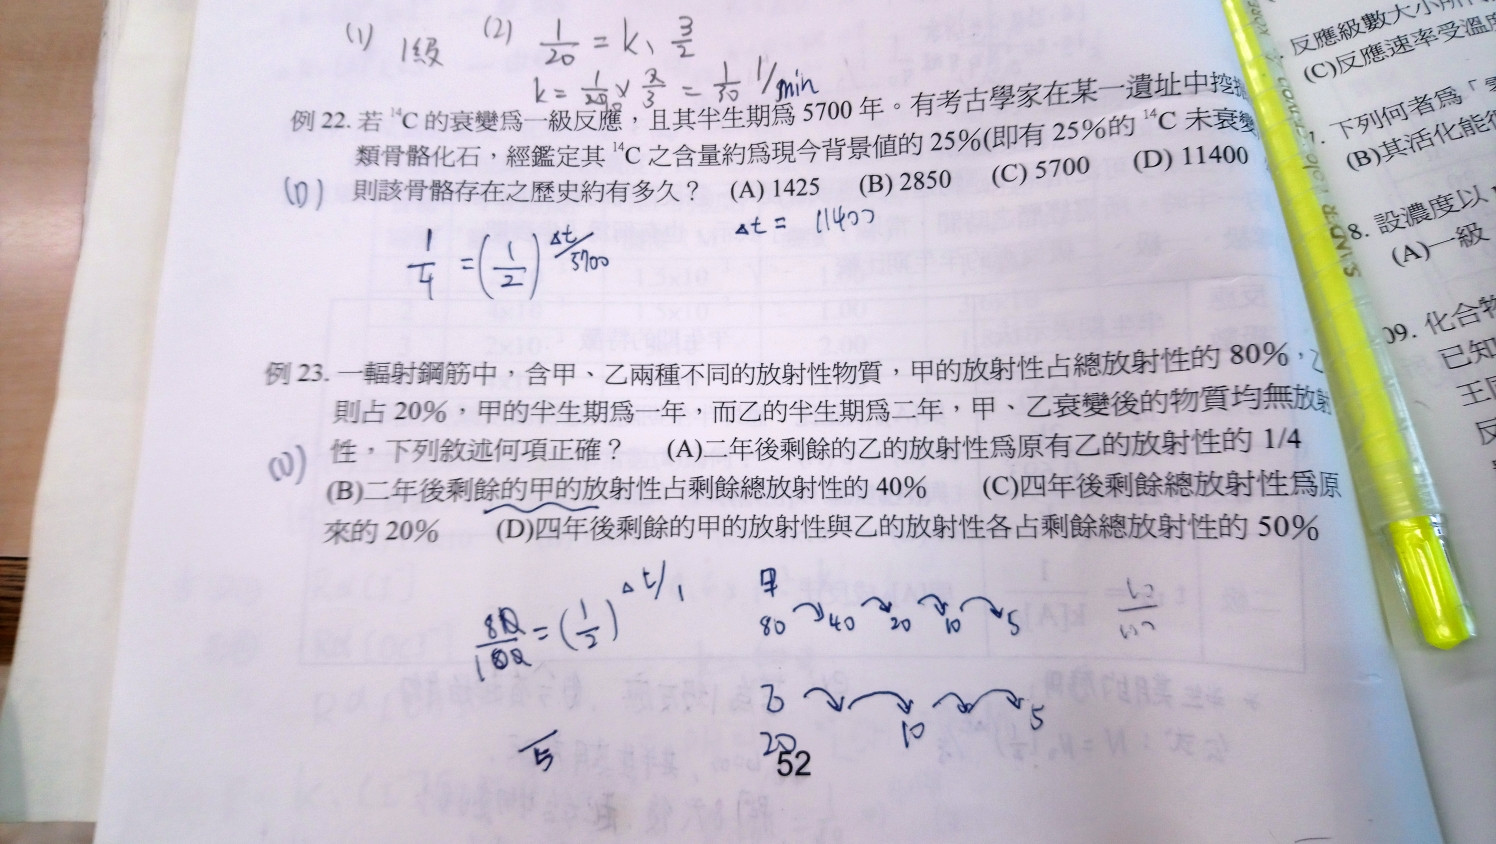 (1) 1級 (2) 1/20 = k、3/2
k = × 2/3 = 1/30 1/min
例 22. 若 ¹⁴C 的衰變為一級反應，且其半生期為 5700 年。有考古學家在某一遺址中挖掘
類骨骼化石，經鑑定其 ¹⁴C 之含量約為現今背景值的 25%(即有 25%的 ¹⁴C 未衰變
(D) 則該骨骼存在之歷史約有多久？ (A) 1425 (B) 2850 (C) 5700 (D) 11400
Δt = 11400
1/4 = (1/2)^Δt/5700
例 23. 一輻射鋼筋中，含甲、乙兩種不同的放射性物質，甲的放射性占總放射性的 80%，乙
則占 20%，甲的半生期為一年，而乙的半生期為二年，甲、乙衰變後的物質均無放射
(D) 性，下列敘述何項正確？ (A)二年後剩餘的乙的放射性為原有乙的放射性的 1/4
(B)二年後剩餘的甲的放射性占剩餘總放射性的 40% (C)四年後剩餘總放射性為原
來的 20% (D)四年後剩餘的甲的放射性與乙的放射性各占剩餘總放射性的 50%
80/100 = (1/2)^Δt/1
甲
80 40 20 10 5
乙
20 10 5
5
52
反應級數大小所
(C)反應速率受溫度
下列何者為「零
(B)其活化能
8. 設濃度以
(A)一級
09. 化合物
已知
王同
反